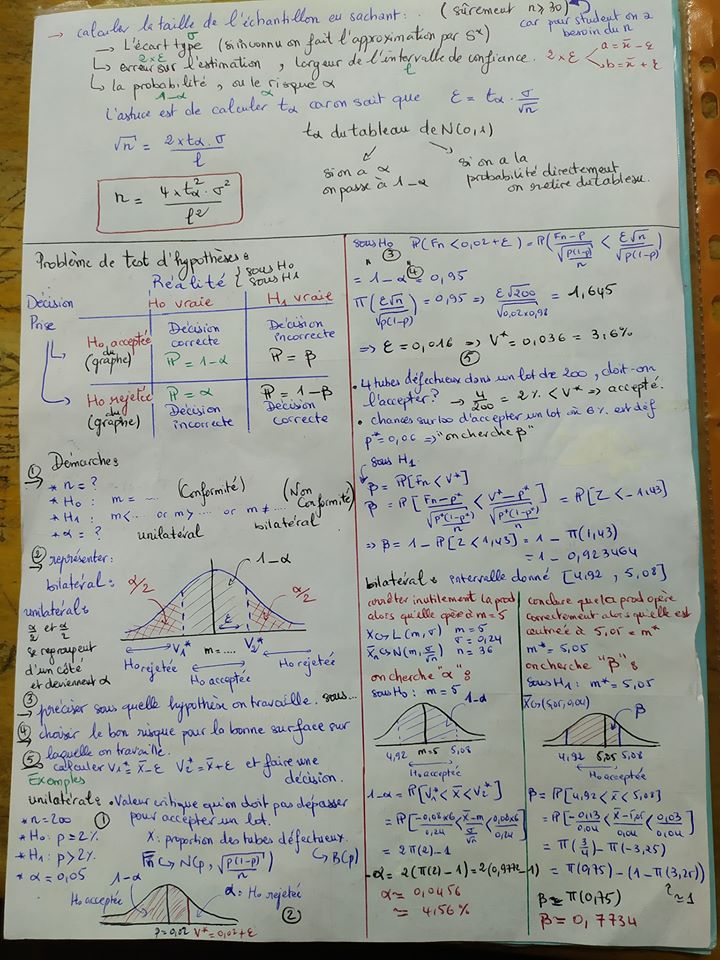 → calculer la taille de l'échantillon en sachant : (sûrement n ≥ 30)
car pour student on a besoin du n
→ L'écart type σ (si inconnu on fait l'approximation par S*)
↳ erreur sur l'estimation, largeur de l'intervalle de confiance.
2×ε l 2×ε < a = x̄ - ε
b = x̄ + ε
↳ la probabilité, ou le risque α
1-α α
L'astuce est de calculer tα car on sait que ε = tα · σ/√n
√n = 2×tα·σ / l
tα du tableau de N(0,1)
si on a α on passe à 1-α
si on a la probabilité directement on retire du tableau.
n = 4×tα²·σ² / l²
Problème de test d'hypothèses :
Réalité { sous H0
sous H1
Décision Prise
H0 vraie H1 vraie
H0 acceptée (du graphe)
Décision correcte P = 1-α
Décision incorrecte P = β
H0 rejetée (du graphe)
P = α Décision incorrecte
P = 1-β Décision correcte
① Démarches
* n = ?
* H0 : m = .... (Conformité) (Non Conformité)
* H1 : m < .... or m > .... or m ≠ ....
* α = ? unilatéral bilatéral
② représenter :
bilatéral : α/2 1-α α/2
unilatéral : α/2 et α/2 se regroupent d'un côté et deviennent α
ε
V1* m = .... V2*
H0 rejetée H0 acceptée H0 rejetée
③ préciser sous quelle hypothèse on travaille. sous...
④ choisir le bon risque pour la bonne surface sur
laquelle on travaille.
⑤ calculer V1* = x̄ - ε V2* = x̄ + ε et faire une
décision.
Exemples
unilatéral : • Valeur critique qu'on doit pas dépasser
pour accepter un lot.
* n = 200 ①
* H0 : p = 2% X : proportion des tubes défectueux.
* H1 : p > 2% Fn ↪ N(p, √(p(1-p)/n)) ↳ B(p)
* α = 0,05
1-α
H0 acceptée α = H0 rejetée
p = 0,02 V* = 0,02 + ε ②
sous H0 ③ P(Fn < 0,02 + ε) = P(Fn - p / √(p(1-p)/n) < ε√n / √(p(1-p)))
= 1 - α ④ = 0,95
π(ε√n / √(p(1-p))) = 0,95 ⇒ ε√200 / √(0,02×0,98) = 1,645
⇒ ε = 0,016 ⇒ V* = 0,036 = 3,6%
⑤
• 4 tubes défectueux dans un lot de 200, doit-on
l'accepter ? → 4/200 = 2% < V* ⇒ accepté.
• chances sur 100 d'accepter un lot où 6% est déf
p* = 0,06 ⇒ "on cherche β"
sous H1
β = P[Fn < V*]
β = P[Fn - p* / √(p*(1-p*)/n) < V* - p* / √(p*(1-p*)/n)] = P[Z < -1,43]
⇒ β = 1 - P[Z < 1,43] = 1 - π(1,43)
= 1 - 0,923464
bilatéral : intervalle donné [4,92 , 5,08]
arrêter inutilement la prod
alors qu'elle opère à m = 5
X ↪ L(m, σ) m = 5
σ = 0,24
X̄n ↪ N(m, σ/√n) n = 36
on cherche "α" :
sous H0 : m = 5
1-α
4,92 m=5 5,08
H0 acceptée
1-α = P[V1* < X̄ < V2*]
= P[-0,08×6 / 0,24 < X̄ - m / σ/√n < 0,08×6 / 0,24]
= 2π(2) - 1
-α = 2(π(2) - 1) = 2(0,9772 - 1)
α ≃ 0,0456
≃ 4,56%
conclure que la prod opère
correctement alors qu'elle est
à 5,05 = m*
m* = 5,05
on cherche "β" :
sous H1 : m* = 5,05
X̄ ↪ (5,05, 0,04)
β
4,92 5,05 5,08
H0 acceptée
β = P[4,92 < x̄ < 5,08]
= P[-0,13 / 0,04 < X̄ - 5,05 / 0,04 < 0,03 / 0,04]
= π(3/4) - π(-3,25)
= π(0,75) - (1 - π(3,25))
≃ 1
β ≃ π(0,75)
β ≃ 0,7734